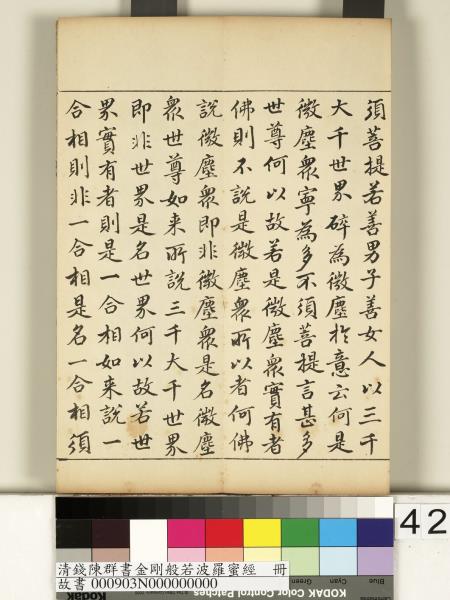 須菩提若善男子善女人以三千
大千世界碎為微塵於意云何是
微塵衆寧為多不須菩提言甚多
世尊何以故若是微塵衆實有者
佛則不說是微塵衆所以者何佛
說微塵衆即非微塵衆是名微塵
衆世尊如來所說三千大千世界
即非世界是名世界何以故若世
界實有者則是一合相如來說一
合相則非一合相是名一合相須
42
清錢陳群書金剛般若波羅蜜經 冊
故書 000903N000000000
Green Cyan Blue
KODAK Color Control Patches